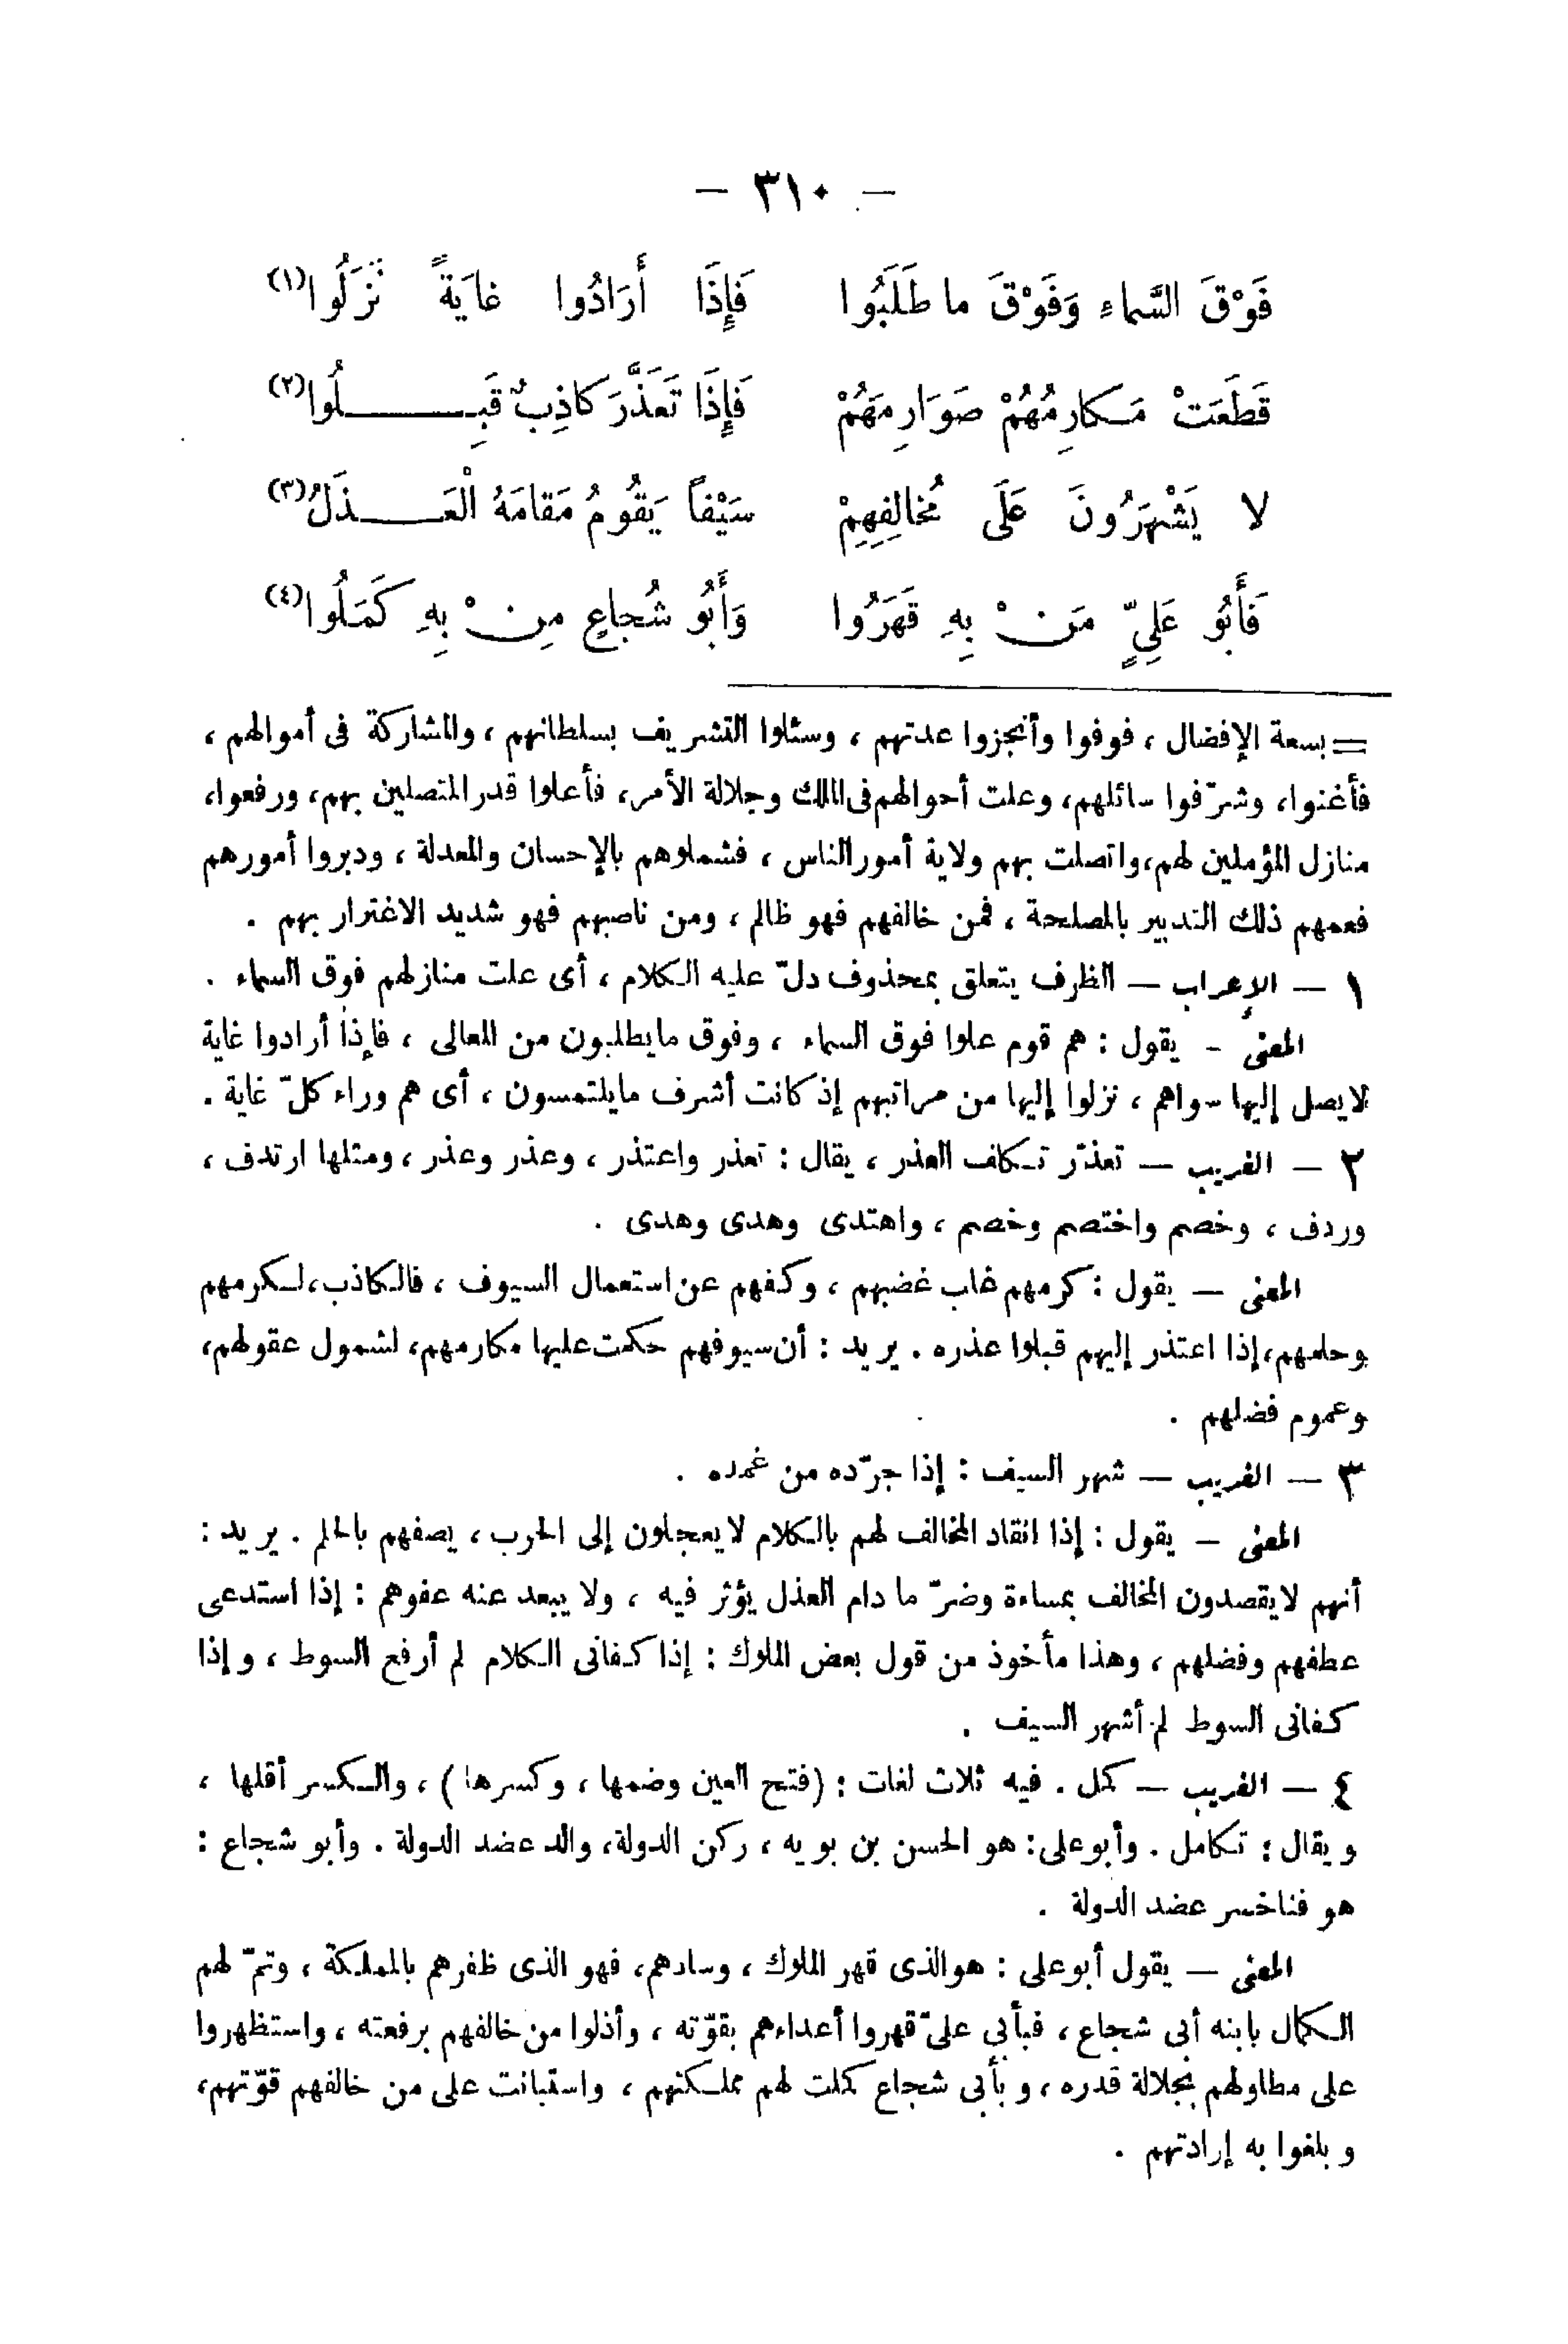 — ٣١٠ —
فَوْقَ السَّماءِ وَفَوْقَ ما طَلَبُوا فَإِذَا أَرَادُوا غايَةً نَزَلُوا(١)
قَطَعَتْ مَكارِمُهُمْ صَوَارِمَهُمْ فَإِذَا تَعَذَّرَ كاذِبٌ قَبِلُوا(٢)
لا يَشْهَرُونَ عَلَى مُخالِفِهِمْ سَيْفاً يَقُومُ مَقامَهُ الْعَذَلُ(٣)
فَأَبُو عَلِيٍّ مَنْ بِهِ قَهَرُوا وَأَبُو شُجاعٍ مِنْ بِهِ كَمَلُوا(٤)
= بسعة الإفضال ، فوفوا وأنجزوا عدتهم ، وسئلوا التشريف بسلطانهم ، والمشاركة فى أموالهم ،
فأغنوا، وشرّفوا سائلهم، وعلت أحوالهم فى الملك وجلالة الأمر، فأعلوا قدر المتصلين بهم، ورفعوا،
منازل المؤملين لهم،واتصلت بهم ولاية أمور الناس ، فشملوهم بالإحسان والمعدلة ، ودبروا أمورهم
فعمهم ذلك التدبير بالمصلحة ، فمن خالفهم فهو ظالم ، ومن ناصبهم فهو شديد الاغترار بهم .
١ — الإعراب — الظرف يتعلق بمحذوف دلّ عليه الكلام ، أى علت منازلهم فوق السماء .
المعنى - يقول : هم قوم علوا فوق السماء ، وفوق مايطلبون من المعالى ، فإذا أرادوا غاية
لايصل إليها سواهم ، نزلوا إليها من مراتبهم إذ كانت أشرف مايلتمسون ، أى هم وراء كلّ غاية .
٢ — الغريب — تعذّر تكلف العذر ، يقال : تعذر واعتذر ، وعذر وعذر ، ومثلها ارتدف ،
وردف ، وخصم واختصم وخصم ، واهتدى وهدى وهدى .
المعنى — يقول : كرمهم غلب غضبهم ، وكفهم عن استعمال السيوف ، فالكاذب،لكرمهم
وحلمهم،إذا اعتذر إليهم قبلوا عذره . يريد : أن سيوفهم حكمت عليها مكارمهم، لشمول عقولهم،
وعموم فضلهم .
٣ — الغريب — شهر السيف : إذا جرّده من غمده .
المعنى — يقول : إذا انقاد المخالف لهم بالكلام لايعجلون إلى الحرب ، يصفهم بالحلم . يريد :
أنهم لايقصدون المخالف بمساءة وضرّ ما دام العذل يؤثر فيه ، ولا يبعد عنه عفوهم : إذا استدعى
عطفهم وفضلهم ، وهذا مأخوذ من قول بعض الملوك : إذا كفانى الكلام لم أرفع السوط ، وإذا
كفانى السوط لم أشهر السيف .
٤ — الغريب — كمل . فيه ثلاث لغات : (فتح العين وضمها ، وكسرها) ، والكسر أقلها ،
ويقال : تكامل . وأبوعلى: هو الحسن بن بويه ، ركن الدولة، والد عضد الدولة . وأبو شجاع :
هو فناخسر عضد الدولة .
المعنى — يقول أبوعلى : هوالذى قهر الملوك ، وسادهم، فهو الذى ظفرهم بالمملكة ، وتمّ لهم
الكمال بابنه أبى شجاع، فبأبي علىّ قهروا أعداءهم بقوّته ، وأذلوا من خالفهم برفعته ، واستظهروا
على مطاولهم بجلالة قدره ، وبأبى شجاع كملت لهم مملكتهم ، واستبانت على من خالفهم قوّتهم،
وبلغوا به إرادتهم .